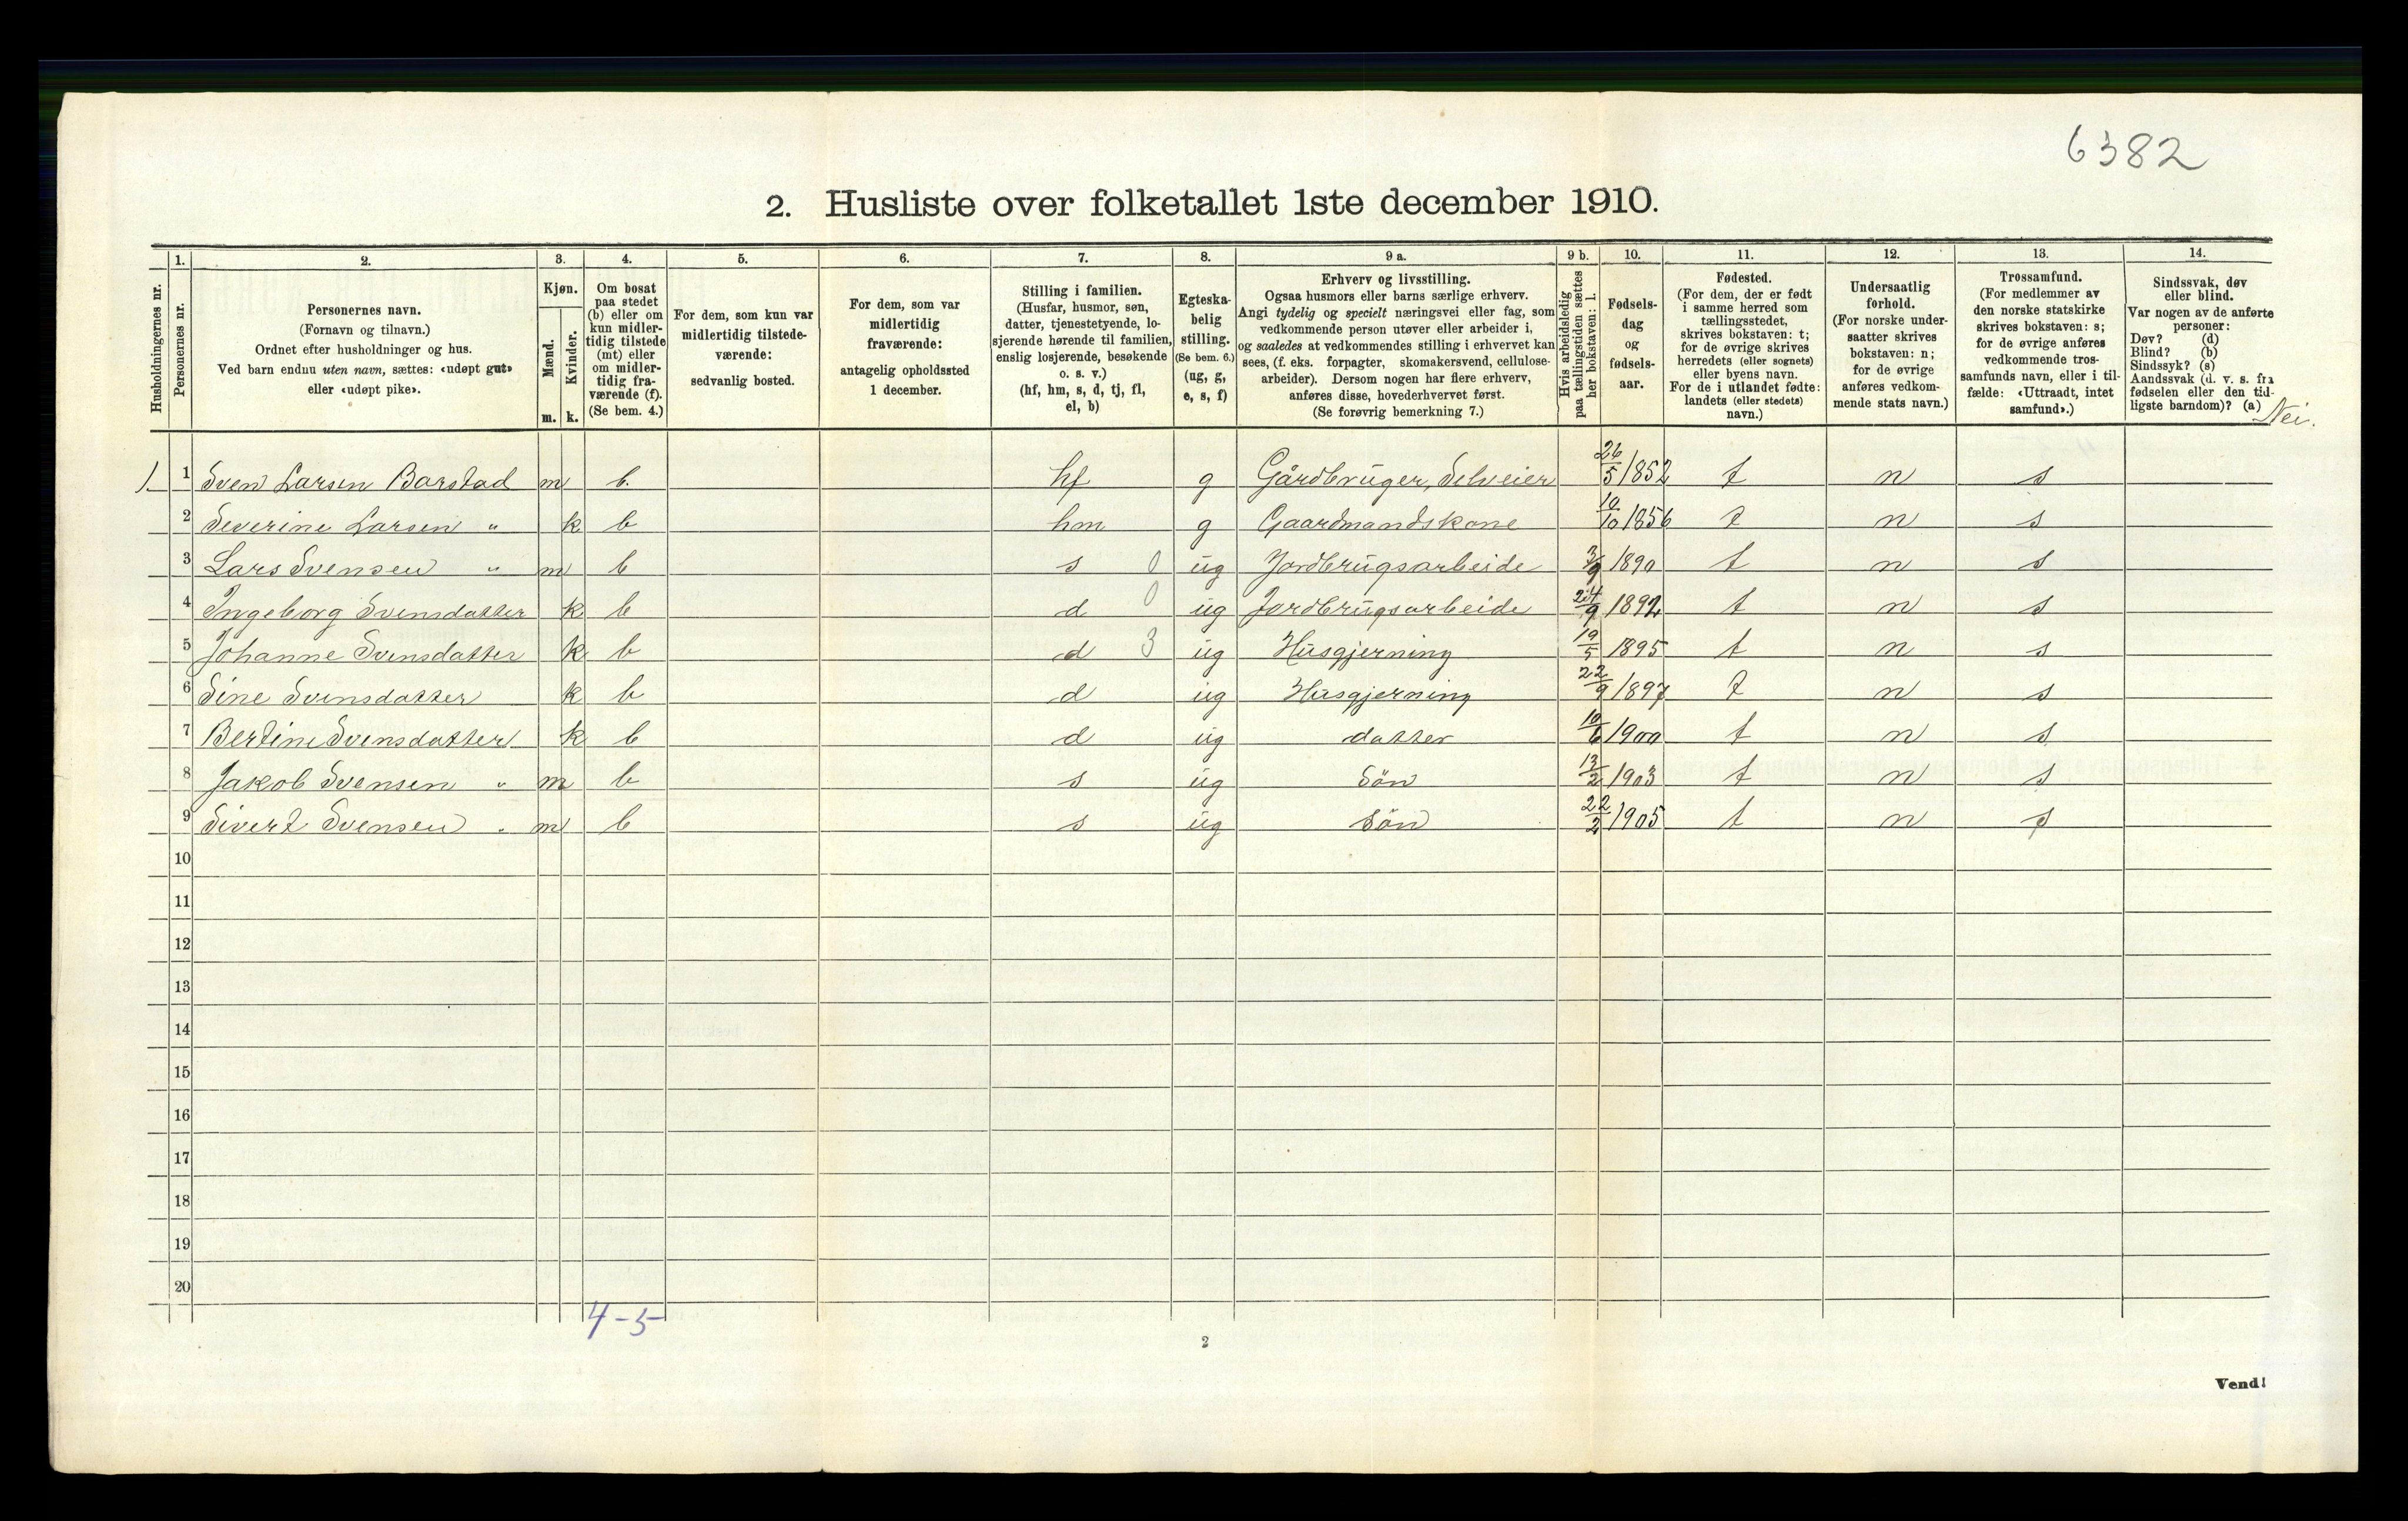 6382
2. Husliste over folketallet 1ste december 1910.
Husholdningernes nr.
1.
Personernes nr.
2.
Personernes navn.
(Fornavn og tilnavn.)
Ordnet efter husholdninger og hus.
Ved barn endnu uten navn, sættes: «udøpt gut»
eller «udøpt pike».
3.
Kjøn.
Mænd.
Kvinder.
m. k.
4.
Om bosat
paa stedet
(b) eller om
kun midler-
tidig tilstede
(mt) eller
om midler-
tidig fra-
værende (f).
(Se bem. 4.)
5.
For dem, som kun var
midlertidig tilstede-
værende:
sedvanlig bosted.
6.
For dem, som var
midlertidig
fraværende:
antagelig opholdssted
1 december.
7.
Stilling i familien.
(Husfar, husmor, søn,
datter, tjenestetyende, lo-
sjerende hørende til familien,
enslig losjerende, besøkende
o. s. v.)
(hf, hm, s, d, tj, fl,
el, b)
8.
Egteska-
belig
stilling.
(Se bem. 6.)
(ug, g,
e, s, f)
9 a.
Erhverv og livsstilling.
Ogsaa husmors eller barns særlige erhverv.
Angi tydelig og specielt næringsvei eller fag, som
vedkommende person utøver eller arbeider i,
og saaledes at vedkommendes stilling i erhvervet kan
sees, (f. eks. forpagter, skomakersvend, cellulose-
arbeider). Dersom nogen har flere erhverv,
anføres disse, hovederhvervet først.
(Se forøvrig bemerkning 7.)
9 b.
Hvis arbeidsledig
paa tællingstiden sættes
her bokstaven: l.
10.
Fødsels-
dag
og
fødsels-
aar.
11.
Fødested.
(For dem, der er født
i samme herred som
tællingsstedet,
skrives bokstaven: t;
for de øvrige skrives
herredets (eller sognets)
eller byens navn.
For de i utlandet fødte:
landets (eller stedets)
navn.)
12.
Undersaatlig
forhold.
(For norske under-
saatter skrives
bokstaven: n;
for de øvrige
anføres vedkom-
mende stats navn.)
13.
Trossamfund.
(For medlemmer av
den norske statskirke
skrives bokstaven: s;
for de øvrige anføres
vedkommende tros-
samfunds navn, eller i til-
fælde: «Uttraadt, intet
samfund».)
14.
Sindssvak, døv
eller blind.
Var nogen av de anførte
personer:
Døv? (d)
Blind? (b)
Sindssyk? (s)
Aandssvak (d. v. s. fra
fødselen eller den tid-
ligste barndom)? (a) Nei.
1. 1 Sven Larsen Barstad m b. hf g Gårdbruger, Selveier 26/5 1852 t n s
2 Severine Larsen " k b hm g Gaardmandskone 10/10 1856 t n s
3 Lars Svensen " m b s 0 ug Jordbrugsarbeide 3/9 1890 t n s
4 Ingeborg Svensdatter k b d 0 ug Jordbrugsarbeide 24/9 1892 t n s
5 Johanne Svensdatter k b d 3 ug Husgjerning 19/5 1895 t n s
6 Sine Svensdatter k b d ug Husgjerning 22/9 1897 t n s
7 Bertine Svensdatter k b d ug datter 10/6 1900 t n s
8 Jakob Svensen " m b s ug Sön 13/2 1903 t n s
9 Sivert Svensen " m b s ug Sön 22/2 1905 t n s
10
11
12
13
14
15
16
17
18
19
20
4-5
2
Vend!